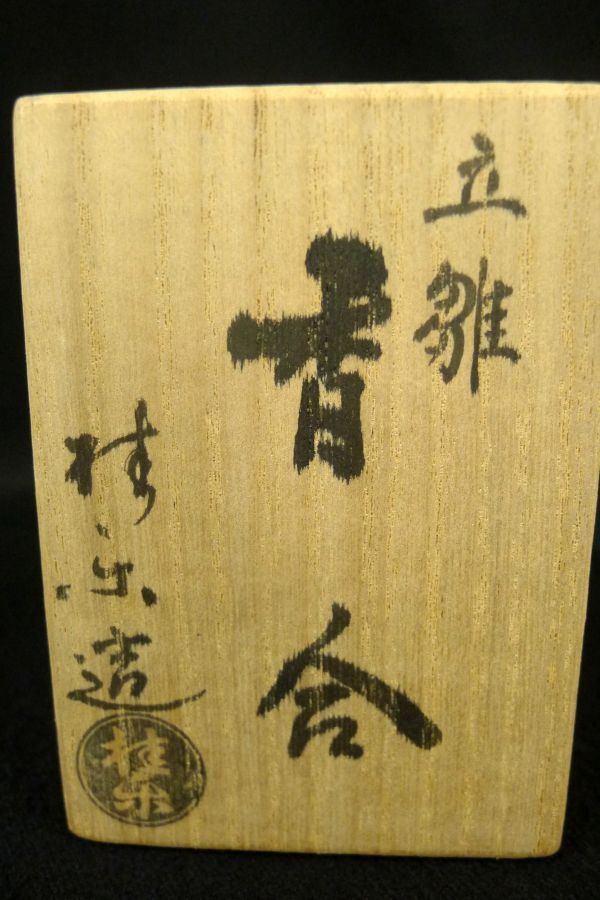 立雛
香合
桂楽造
桂楽